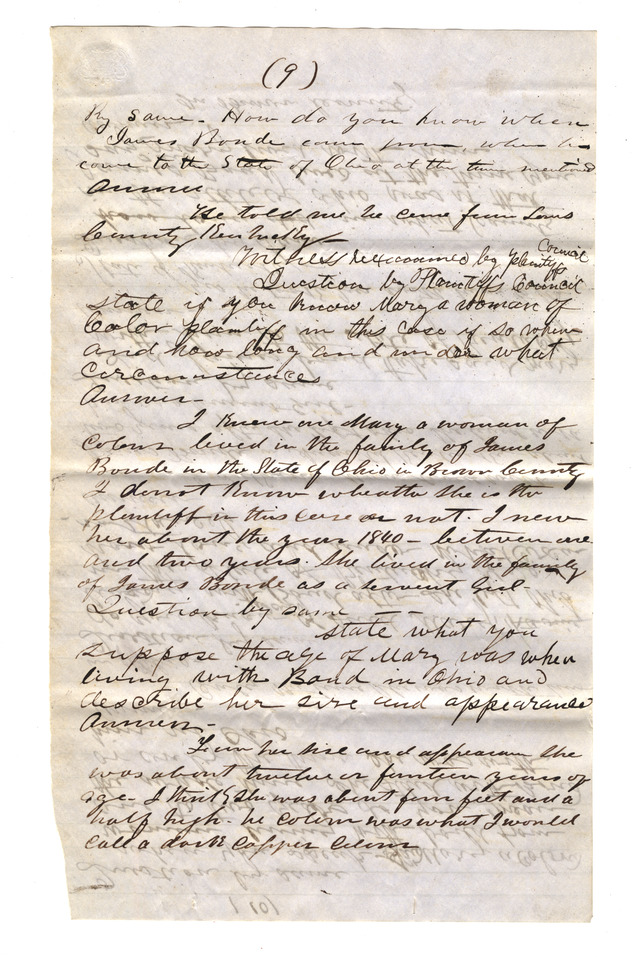 (9)
By same - How do you know when
James Bonde came from when he
came to the State of Ohio at the time mentioned
Answer
He told me he came from Lewis
County Kentucky
Witness reexamined by plentiffs Council
Question by Plaintiffs Council
state if you know Mary a woman of
Color plantiff in this case if so when
and how long and under what
corcumstances
Answer -
I knew one Mary a woman of
colour lived in the family of James
Bonde in the State of Ohio in Brown County
I do not know wheather she is the
plantiff in this case or not. I new
her about the year 1840 - between one
and two years. She lived in the family
of James Bonde as a servent Girl -
Question by same
state what you
suppose the age of Mary was when
living with Bond in Ohio and
describe her size and appearance
Answer -
From her sise and appearance she
was about twelve or fourteen years of
age - I think she was about four feet and a
half high - he colour was what I would
call a dark copper colour